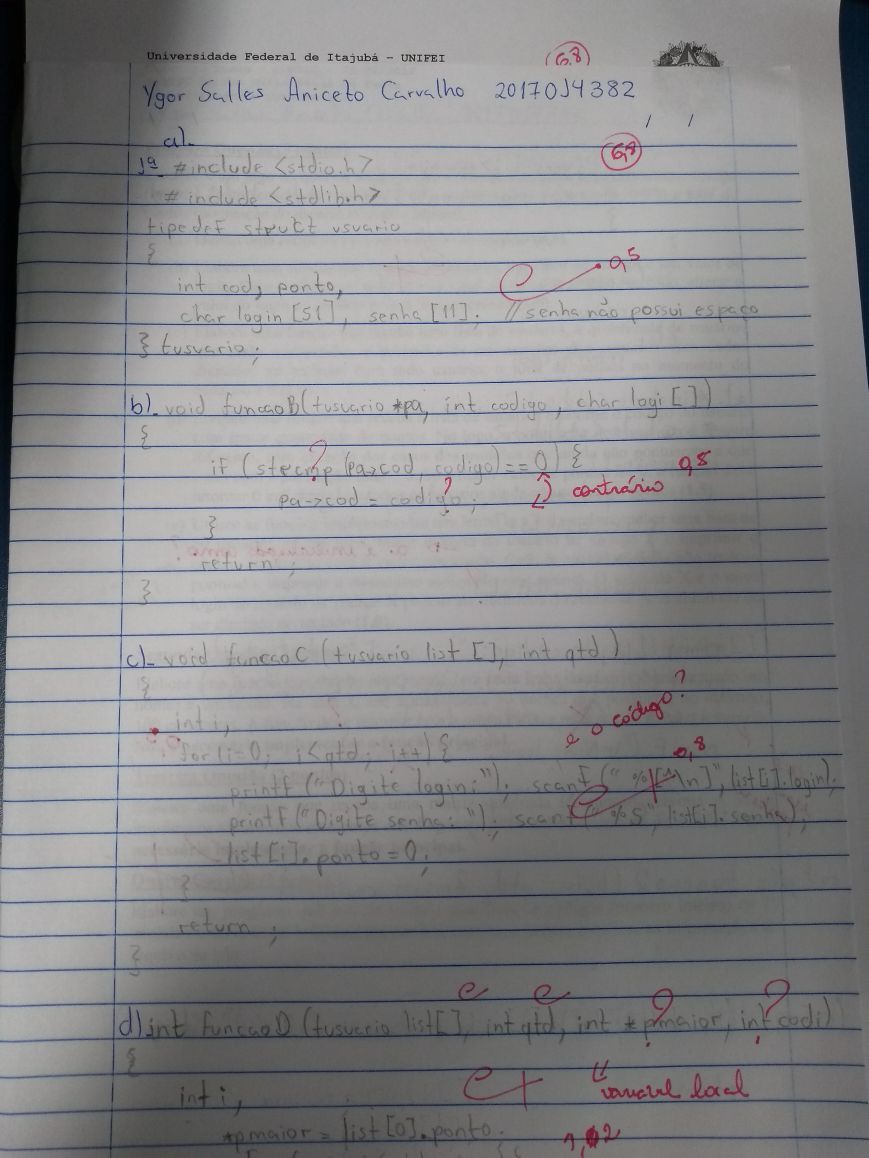 Universidade Federal de Itajubá - UNIFEI
6,8
Ygor Salles Aniceto Carvalho 2017014382
/ /
a)-
6,8
1ª #include <stdio.h>
# include <stdlib.h>
tipedef struct usuario
{
0,5
int cod, ponto,
char login [51], senha [11]; //senha não possui espaço
} tusuario;
b)- void funcaoB(tusuario *pa, int codigo, char logi [])
{
?
if (strcmp (pa->cod, codigo) == 0) {
pa->cod = codigo; ? contrário 0,8
}
return ;
}
c)- void funcaoC (tusuario list [], int qtd)
{
e o código?
int i,
for (i=0; i<qtd; i++) {
0,8
printf ("Digite login:"); scanf (" %[^\n]", list[i].login);
printf ("Digite senha: "); scanf (" %s", list[i].senha);
list[i].ponto = 0;
}
return ;
}
? ?
d) int funcaoD (tusuario list[], int qtd, int *pmaior, int codi)
{
variável local
int i,
*pmaior = list [0].ponto.